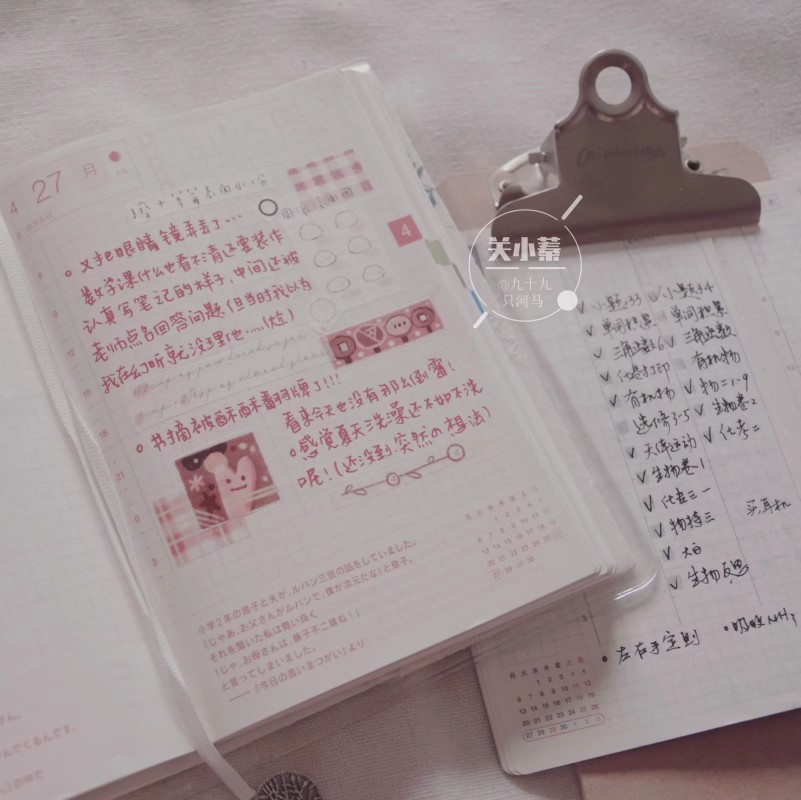 4 27 月
4
○ 又把眼睛镜弄丢了…
数学课什么也看不清还要装作
认真写笔记的样子,中间还被
老师点名回答问题(但当时我以为
我在幻听就没了理他....(尬)
○ 书摘被酥酥翻牌了!!!
看来今天也没有那么倒霉!
○ 感觉夏天洗澡还不如不洗
呢!(还没到.突然の想法)
小学2年の息子と夫が、ルパン三世の話をしていました。
「じゃあ、お父さんがルパンで、僕が次元だな」と息子。
それを聞いた私は勢い良く
「じゃ、お母さんは、藤子不二雄ね!」
と言ってしまいました。
──『今日の言いまつがい』より
关小蓁
@九十九
只河马
∨ 小题33 ∨ 小题34
∨ 单词积累 单词积累
∨ 三角函数6 ∨ 三角函数
∨ 化卷打印 有机物
∨ 有机物 ∨ 物二1-9
选修3-5 ∨ 生物卷2
∨ 天体运动 ∨ 化考二
∨ 生物卷1
∨ 化卷三一
∨ 物特三 买耳机
∨ 大白
∨ 生物反思
• 左右手定则 • 吸收NH₃